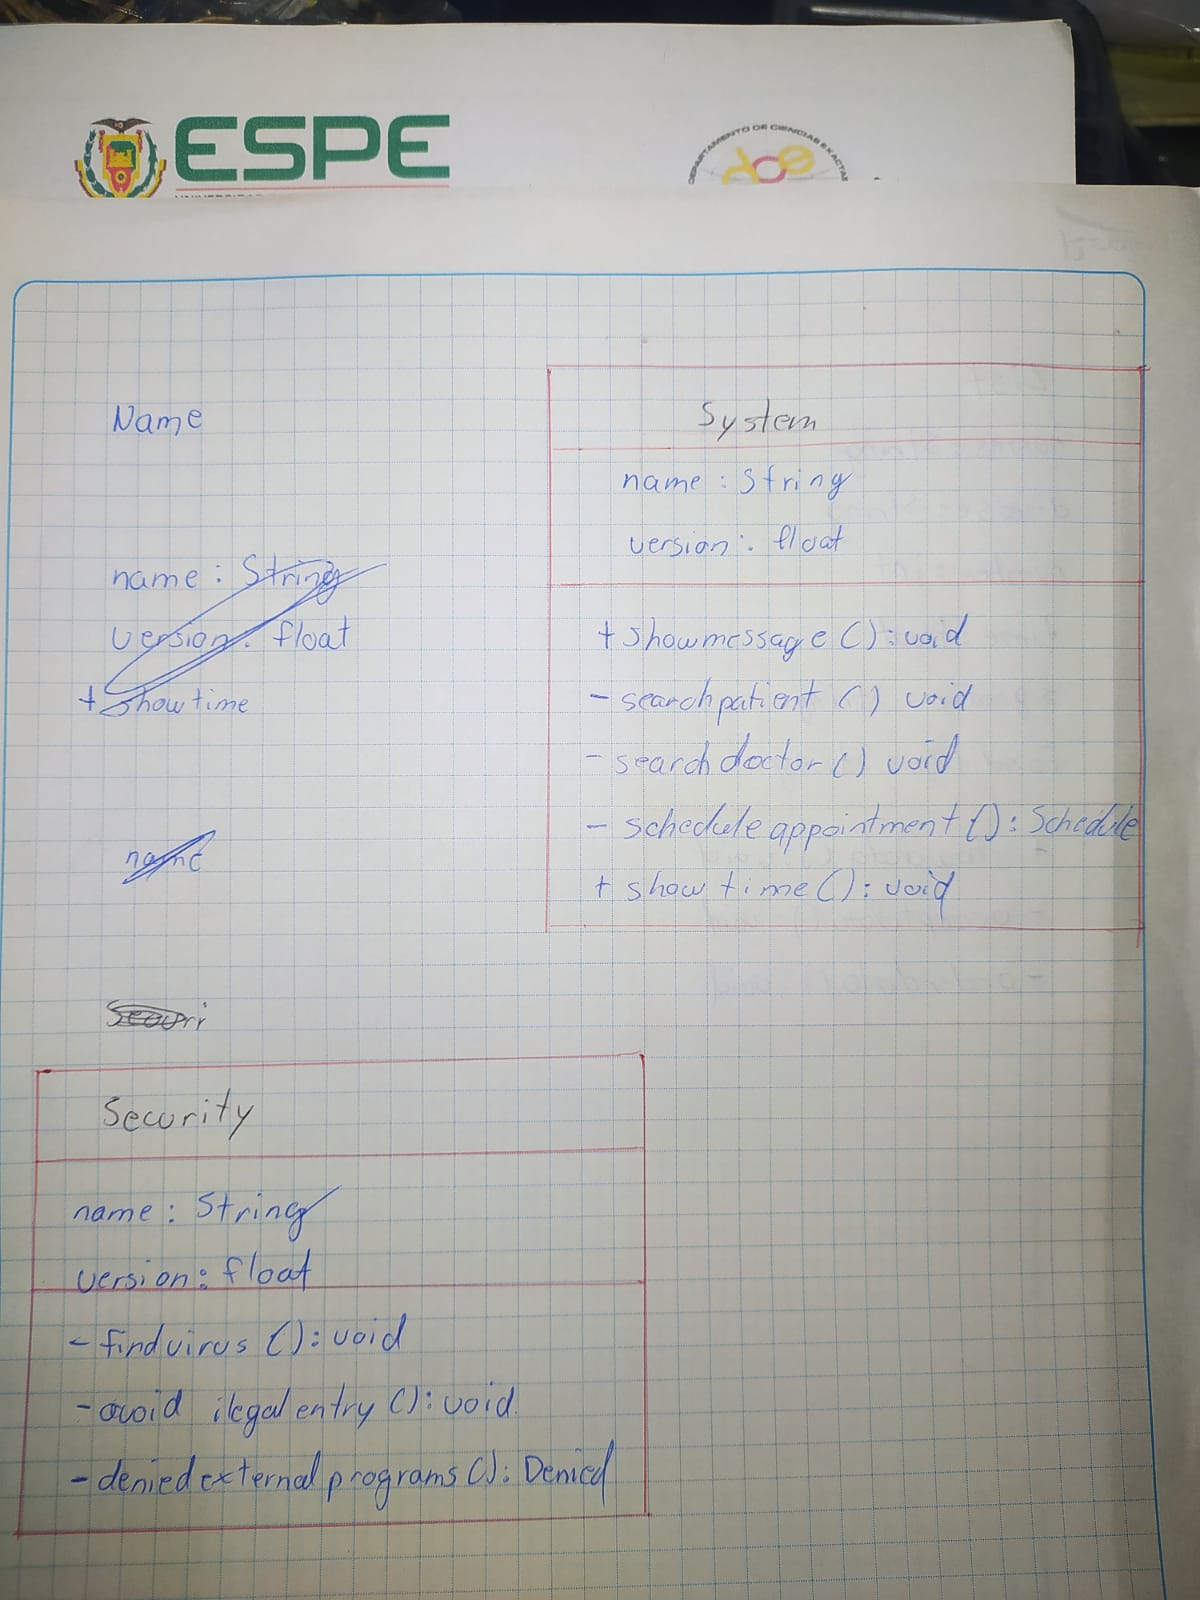 ESPE
DEPARTAMENTO DE CIENCIAS EXACTAS
Name
name : String
version : float
+ show time
name
Securi
System
name : String
version : float
+ showmessage () : void
- searchpatient () void
- search doctor () void
- schedule appointment () : Schedule
+ show time () : void
Security
name : String
version : float
- findvirus () : void
- avoid ilegal entry () : void.
- denied external programs () : Denied